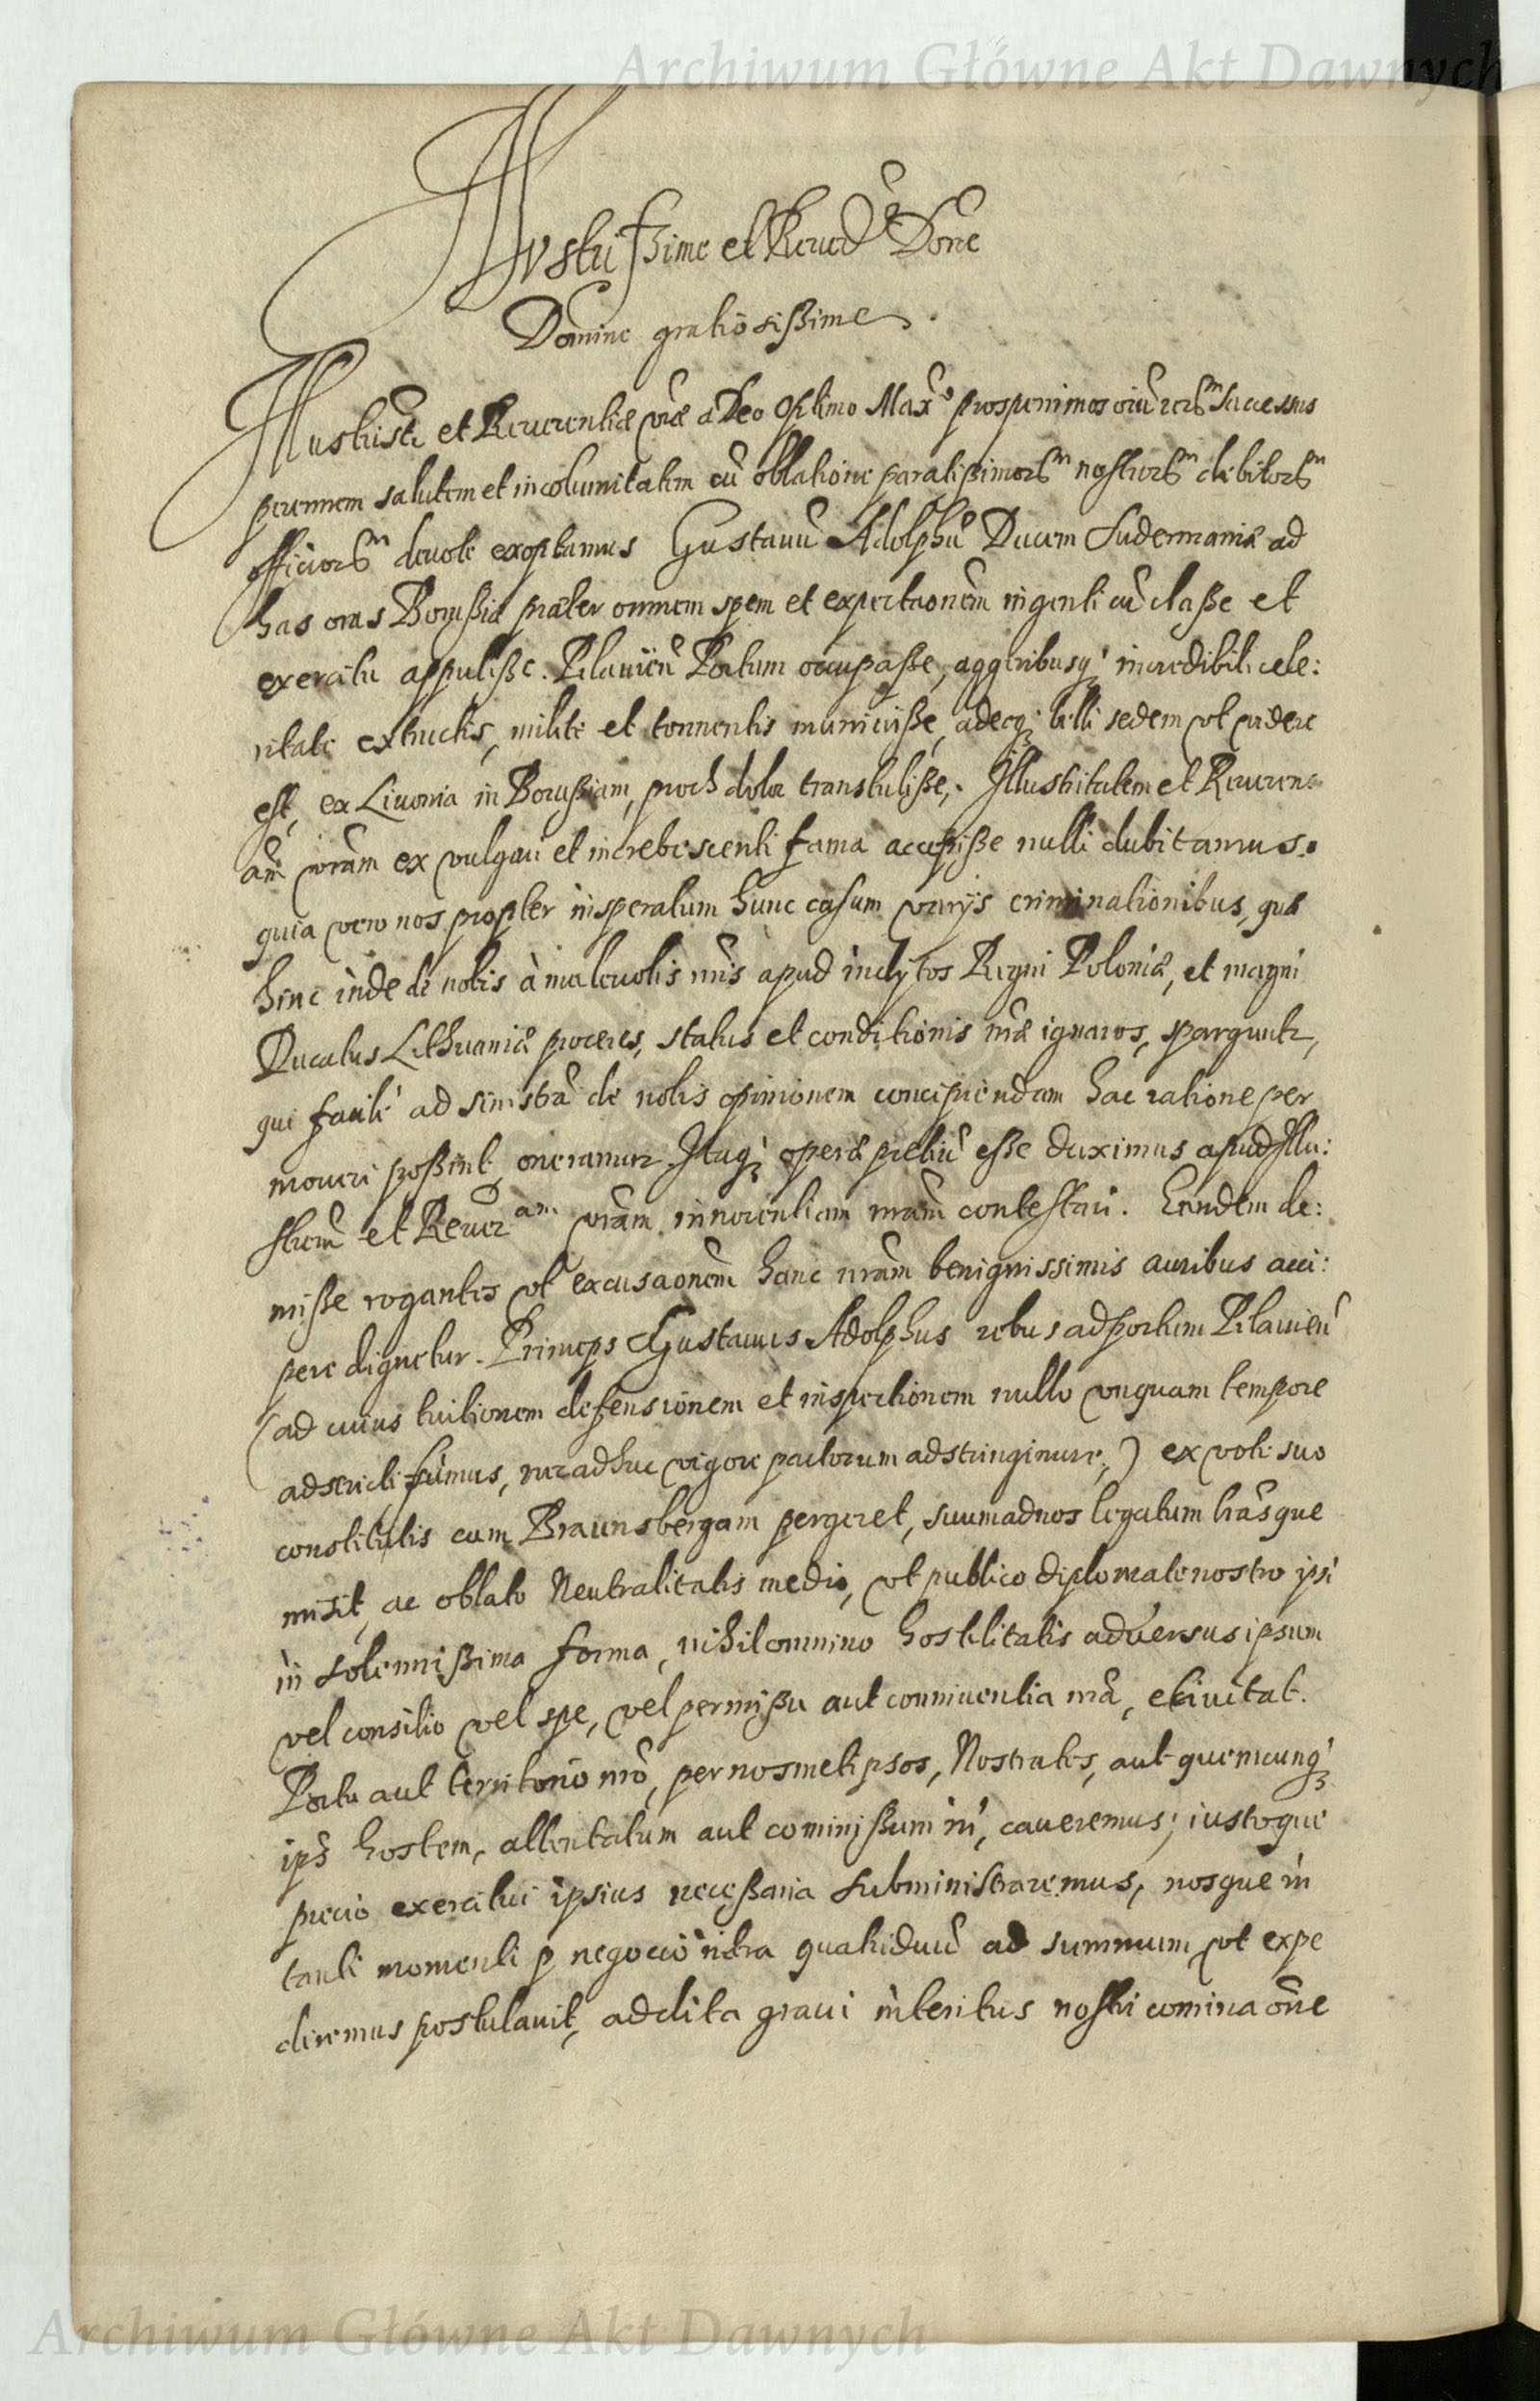 Archiwum Główne Akt Dawnych
Illustrissime et Reverd̃e Dñe
Domine gratiosissime.
Illustrisᵗⁱ et Reverentiæ vr̃æ a Deo Optimo Max̃º prosperrimos oiũ rerũ successus
perennem salutem et incolumitatem cũ oblatione paratißimorũ nostrorũ debitorũ
officiorũ devote exoptamus Gustavũ Adolphũ Ducem Sudermaniæ ad
has oras Borußiæ præter omnem spem et expectãonem ingenti cũ claße et
exercitu appuliße. Pilaviẽn Portum occupaße, aggeribusq́ incredibili cele:
ritate extructis, milite et tormentis muniviße, adeoq́ belli sedem vt videre
est, ex Livonia in Borußiam, proch dolor transtuliße,. Illustritatem et Reveren:
am̃ vr̃am ex vulgari et increbescenti fama accepiße nulli dubitamus.
quia vero nos propter insperatum hunc casum varijs criminationibus, quæ
hinc ìnde de nobis à malevolis nr̃is apud inclytos Regni Poloniæ, et magni
Ducatus Lithvaniæ proceres, status et conditionis nr̃æ ignaros, sparguntr,
qui facilè ad sinistrã de nobis opinionem concipiendam hac ratione per
moveri poßint, oneramur. Itaq́ operæ pretiũ eße duximus apud Illu:
strem̃ et Reverᵃᵐ vr̃am innocentiam nr̃am contestari. Eandem de:
miße rogantes vt excusãonem hanc nr̃am benignissimis auribus acci:
pere dignetur. Princeps Gustavus Adolphus rebus ad portum Pilaviẽn
(ad cuius tuitionem defensionem et inspectionem nullo vnquam tempore
adstricti fuimus, nec adhuc vigore pactorum adstringimur,) ex voto suo
constitutis cum Braunsbergam pergeret, suum ad nos legatum lr̃asque
misit, ac oblato Neutralitatis medio, vt publico diplomate nostro ipsi
in solennißima forma, nihil omnino hostilitatis adversus ipsum
vel consilio vel spe, vel permißu aut conniventia nr̃a, e civitat.
Portu aut territorio nr̃o, per nosmetipsos, Nostrates, aut quemcunq́
ips̃ hostem, attentatum aut commißum iri, caveremus; iustoque
precio exercitui ipsius neceßaria subministraremus, nosque in
tanti momenti p negocio intra quatriduũ ad summum vt expe
diremus postulavit, addita gravi interitus nostri cominãone
Archiwum Główne Akt Dawnych